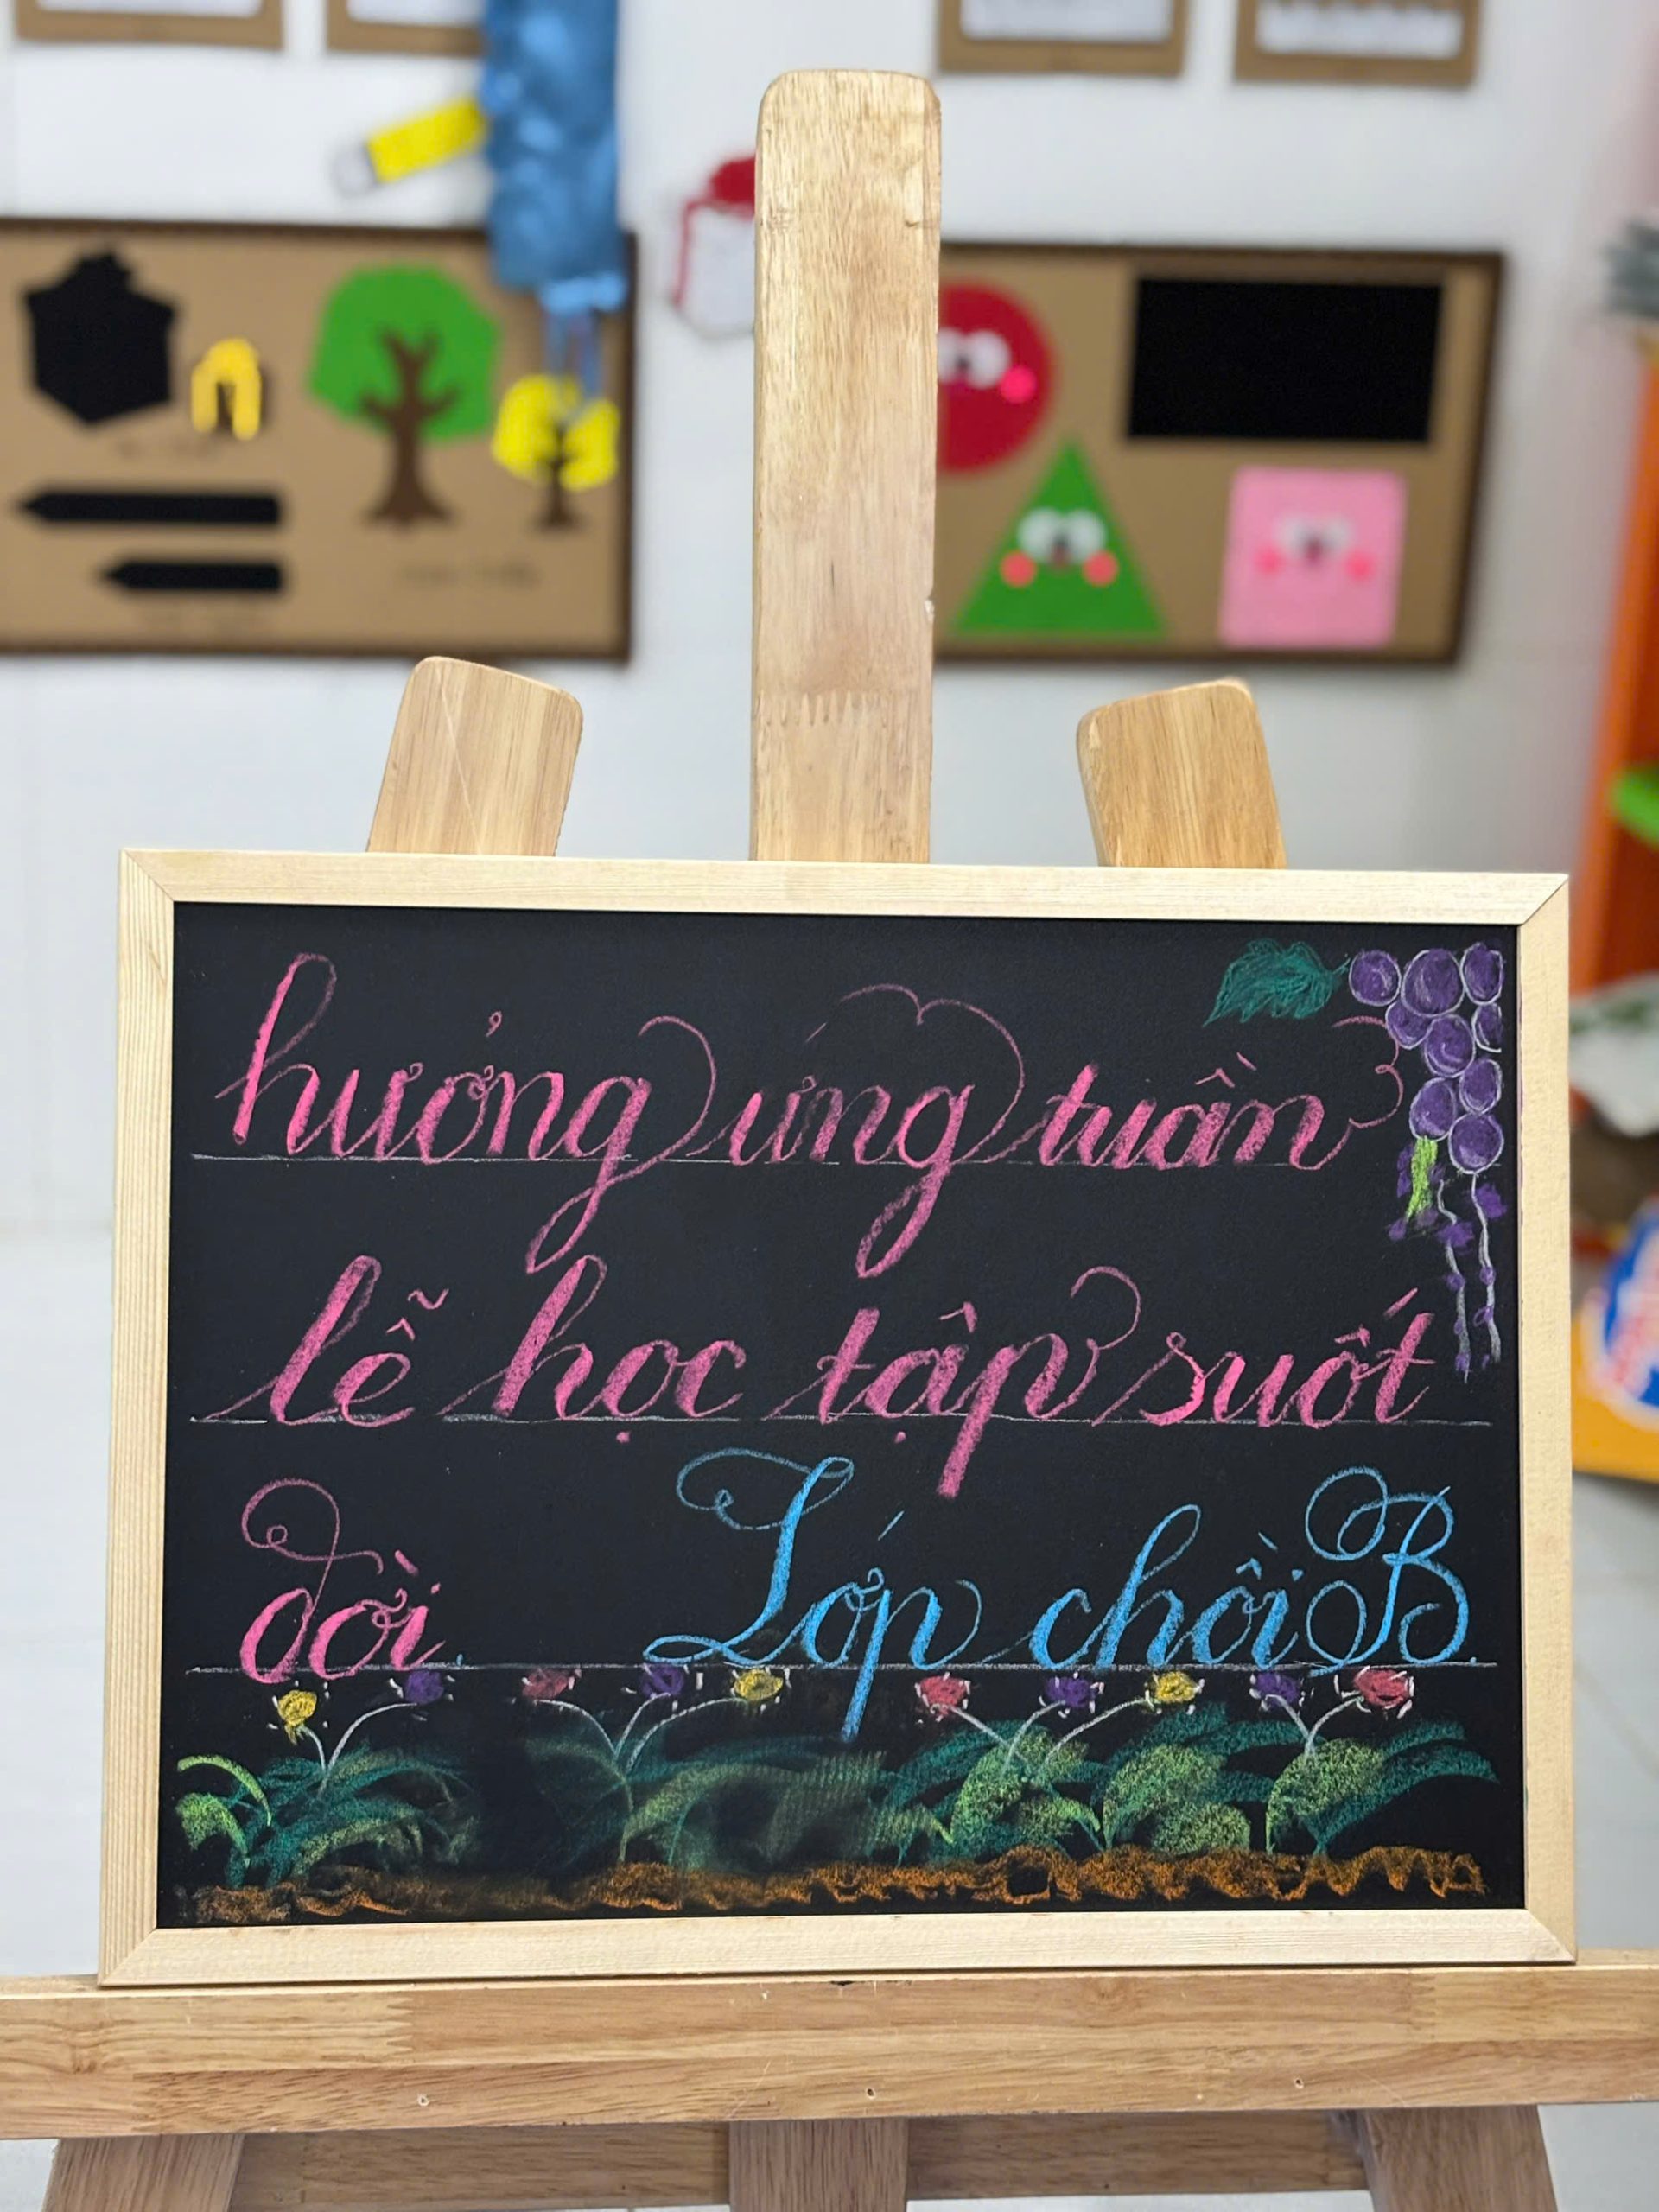 hưởng ứng tuần
lễ học tập suốt
đời.
Lớp chồi B.